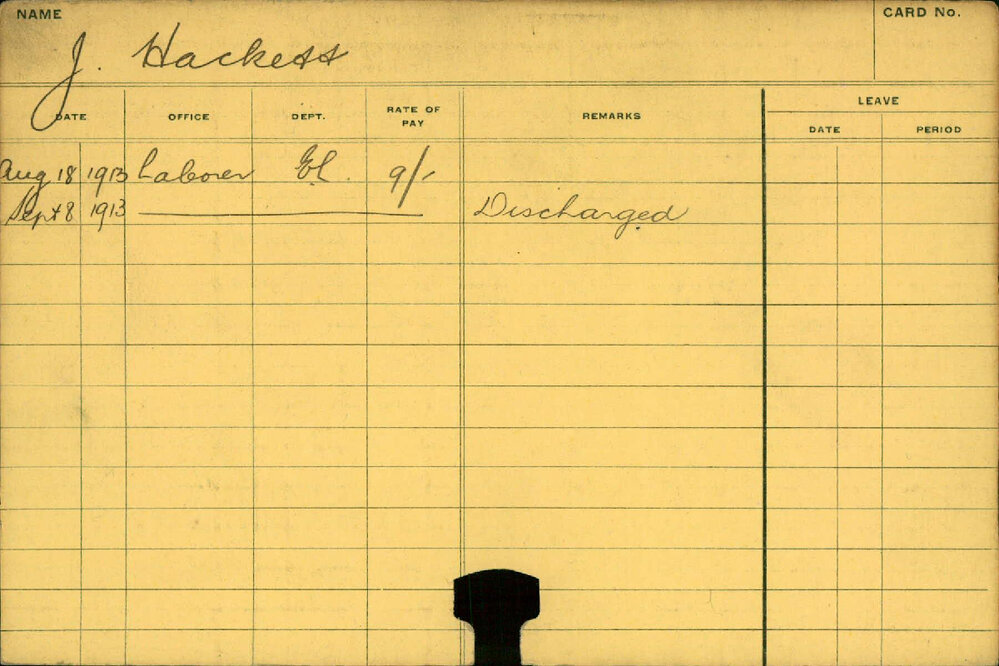 NAME
CARD No.
J. Hackett
DATE OFFICE DEPT. RATE OF PAY REMARKS LEAVE
DATE PERIOD
Aug 18 1913 Laborer El. 9/-
Sept 8 1913 Discharged